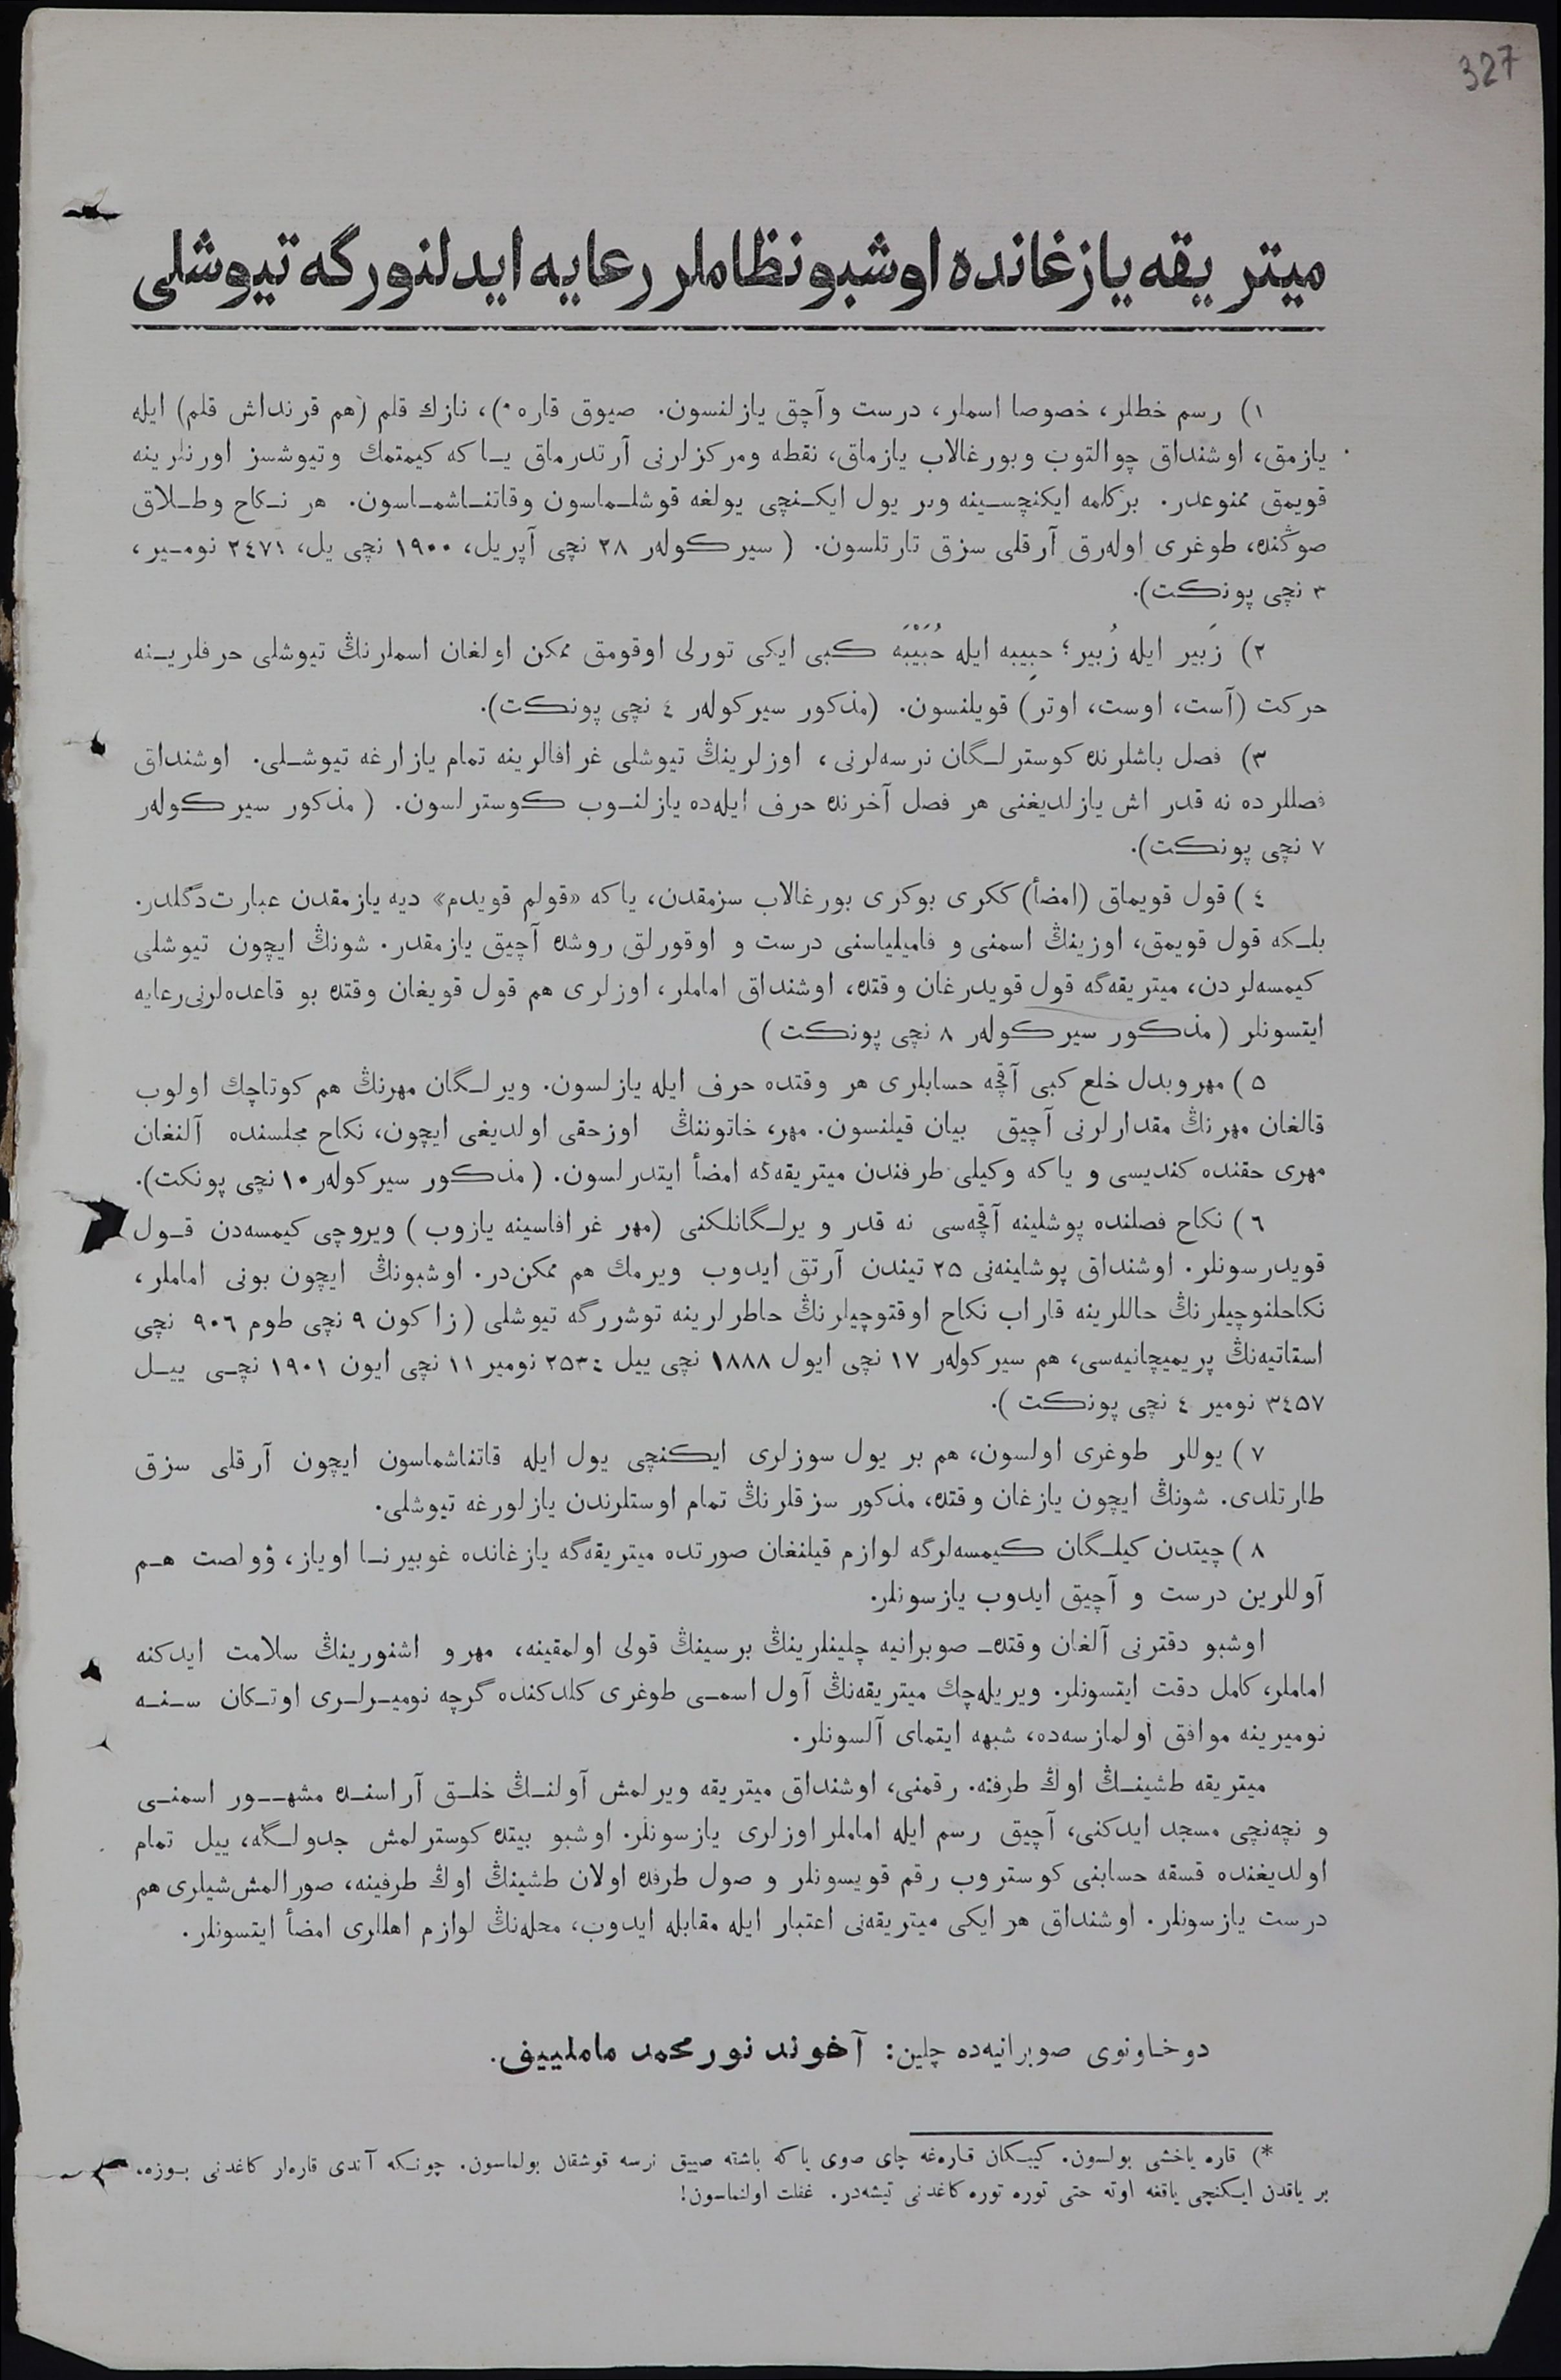 327
ميتريقه يازغانده اوشبو نظاملر رعايه ايدلنورگه تيوشلى
١) رسم خطلر، خصوصا اسملر، درست وآچق يازلنسون. صيوق قاره*)، نازك قلم (هم قرنداش قلم) ايله
يازمق، اوشنداق چوالتوب وبورغالاب يازماق، نقطه ومركزلرنى آرتدرماق يــا كه كيمتمك وتيوشسز اورنلرينه
قويمق ممنوعدر. بركلمه ايكنچســينه وبر يول ايكــنچى يولغه قوشلــماسون وقاتنــاشمــاسون. هر نــكاح وطــلاق
صوڭنده، طوغرى اولەرق آرقلى سزق تارتلسون. (سيركولەر ٢٨ نچى آپريل، ١٩٠٠ نچى يل، ٢٤٧١ نومــير،
٣ نچى پونكت).
٢) زَبير ايله زُبير؛ حبِيبه ايله حُبَيْبَه كبى ايكى تورلى اوقومق ممكن اولغان اسملرنڭ تيوشلى حرفلريــنه
حركت (آست، اوست، اوتر) قويلنسون. (مذكور سيركولەر ٤ نچى پونكت).
٣) فصل باشلرنده كوسترلــگان نرسەلرنى، اوزلرينڭ تيوشلى غرافالرينه تمام يازارغه تيوشــلى. اوشنداق
فصللرده نه قدر اش يازلديغنى هر فصل آخرنده حرف ايلەده يازلنــوب كوسترلسون. (مذكور سيركولەر
٧ نچى پونكت).
٤) قول قويماق (امضأ) ككرى بوكرى بورغالاب سزمقدن، ياكه «قولم قويدم» ديه يازمقدن عبارت دگلدر.
بلــكه قول قويمق، اوزينڭ اسمنى و فاميلياسنى درست و اوقورلق روشده آچيق يازمقدر. شونڭ ايچون تيوشلى
كيمسەلردن، ميتريقەگه قول قويدرغان وقتده، اوشنداق اماملر، اوزلرى هم قول قويغان وقتده بو قاعدەلرنى رعايه
ايتسونلر (مذكور سيركولەر ٨ نچى پونكت)
٥) مهروبدل خلع كبى آقچه حسابلرى هر وقتده حرف ايله يازلسون. ويرلــگان مهرنڭ هم كوتاچك اولوب
قالغان مهرنڭ مقدارلرنى آچيق بيان قيلنسون. مهر، خاتوننڭ اوزحقى اولديغى ايچون، نكاح مجلسنده آلنغان
مهرى حقنده كنديسى و ياكه وكيلى طرفندن ميتريقەگه امضأ ايتدرلسون. (مذكور سيركولەر ١٠ نچى پونكت).
٦) نكاح فصلنده پوشلينه آقچەسى نه قدر و يرلــگانلكنى (مهر غرافاسينه يازوب) ويروچى كيمسەدن قــول
قويدرسونلر. اوشنداق پوشلينەنى ٢٥ تيندن آرتق ايدوب ويرمك هم ممكن در. اوشبونڭ ايچون بونى اماملر،
نكاحلنوچيلرنڭ حاللرينه قاراب نكاح اوقتوچيلرنڭ خاطرلرينه توشررگه تيوشلى (زاكون ٩ نچى طوم ٩٠٦ نچى
استاتيەنڭ پريميچانيەسى، هم سيركولەر ١٧ نچى ايول ١٨٨٨ نچى ييل ٢٥٣٤ نومير ١١ نچى ايون ١٩٠١ نچــى ييــل
٣٤٥٧ نومير ٤ نچى پونكت).
٧) يوللر طوغرى اولسون، هم بر يول سوزلرى ايكنچى يول ايله قاتناشماسون ايچون آرقلى سزق
طارتلدى. شونڭ ايچون يازغان وقتده، مذكور سزقلرنڭ تمام اوستلرندن يازلورغه تيوشلى.
٨) چيتدن كيلــگان كيمسەلرگه لوازم قيلنغان صورتده ميتريقەگه يازغانده غوبيرنــا اوياز، ۋولصت هــم
آوللرين درست و آچيق ايدوب يازسونلر.
اوشبو دفترنى آلغان وقتده صوبرانيه چلينلرينڭ برسينڭ قولى اولمقينه، مهر و اشنورينڭ سلامت ايدكنه
اماملر، كامل دقت ايتسونلر. ويريلەچك ميتريقەنڭ آول اسمــى طوغرى كلدكنده گرچه نوميــرلــرى اوتــكان ســنــه
نوميرينه موافق اولمازسەده، شبهه ايتماى آلسونلر.
ميتريقه طشينــڭ اوڭ طرفنه. رقمنى، اوشنداق ميتريقه ويرلمش آولنــڭ خلــق آراسنــده مشهــور اسمنــى
و نچەنچى مسجد ايدكنى، آچيق رسم ايله اماملر اوزلرى يازسونلر. اوشبو بيتده كوسترلمش جدولــگه، ييل تمام
اولديغنده قسقه حسابنى كوستروب رقم قويسونلر و صول طرفده اولان طشينڭ اوڭ طرفينه، صورالمش شيلرى هم
درست يازسونلر. اوشنداق هر ايكى ميتريقەنى اعتبار ايله مقابله ايدوب، محلەنڭ لوازم اهللرى امضأ ايتسونلر.
دوخاونوى صوبرانيەده چلين: آخوند نورمحمد ماملييف.
*) قاره ياخشى بولسون. كيبــكان قــارەغه چاى صوى ياكه باشته صيق نرسه قوشقان بولماسون. چونــكه آندى قارەلر كاغدنى بــوزه،
بر ياقدن ايــكنچى ياقغه اوته حتى توره توره كاغدنى تيشەدر. غفلت اولنماسون!